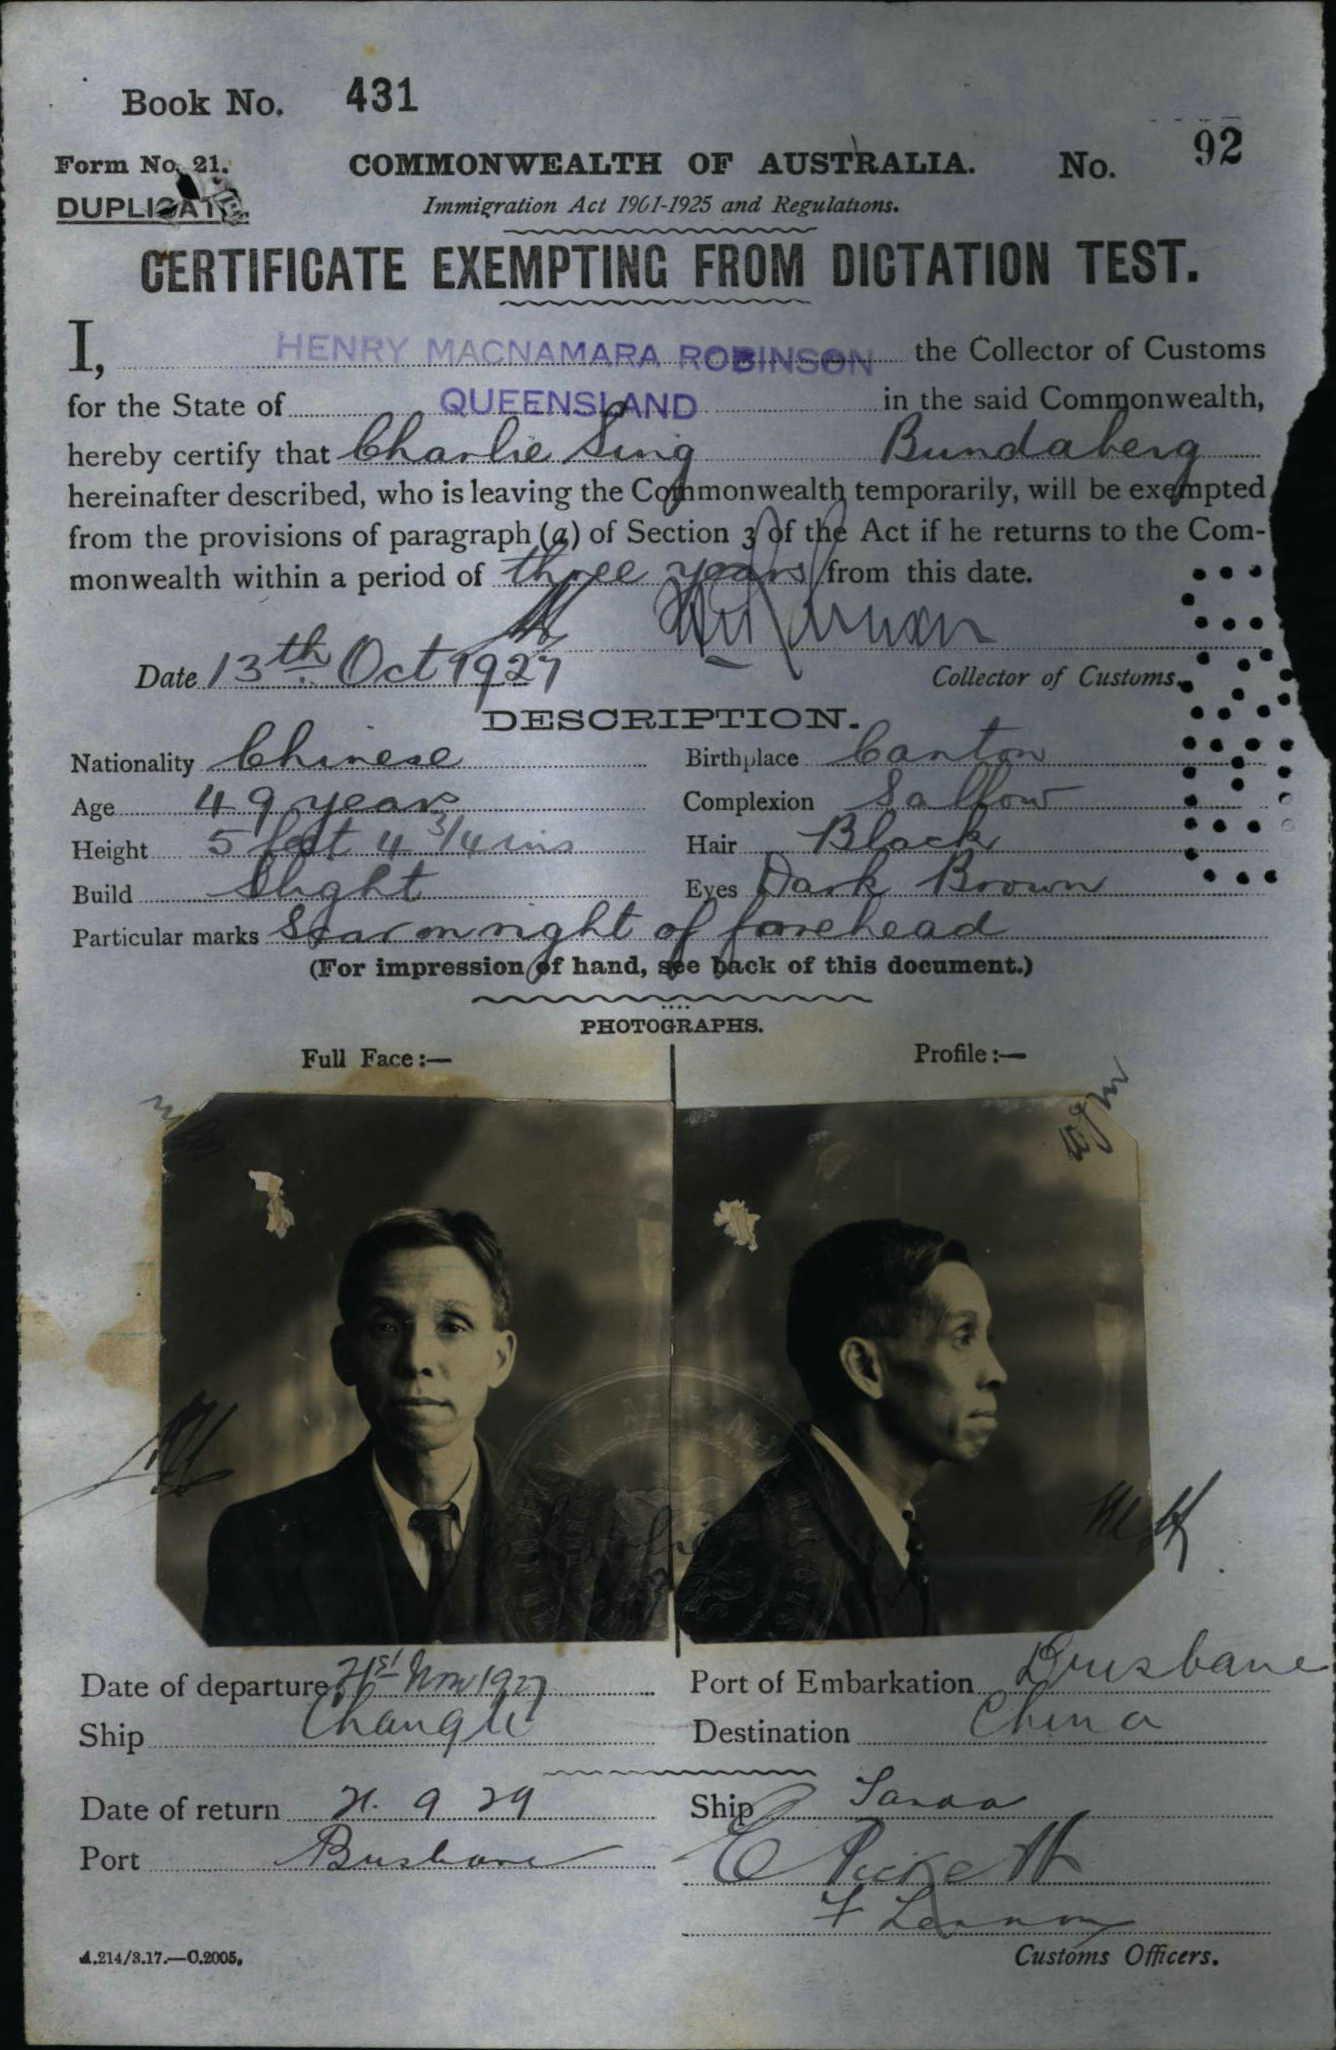 Book No. 431
Form No. 21. COMMONWEALTH OF AUSTRALIA. No. 92
DUPLICATE. Immigration Act 1901-1925 and Regulations.
CERTIFICATE EXEMPTING FROM DICTATION TEST.
I, HENRY MACNAMARA ROBINSON the Collector of Customs
for the State of QUEENSLAND in the said Commonwealth,
hereby certify that Charlie Sing Bundaberg
hereinafter described, who is leaving the Commonwealth temporarily, will be exempted
from the provisions of paragraph (a) of Section 3 of the Act if he returns to the Com-
monwealth within a period of three years from this date.
Date 13th Oct 1927 Collector of Customs.
DESCRIPTION.
Nationality Chinese Birthplace Canton
Age 49 years Complexion Sallow
Height 5 feet 4 3/4 ins Hair Black
Build Slight Eyes Dark Brown
Particular marks Scar on right of forehead
(For impression of hand, see back of this document.)
PHOTOGRAPHS.
Full Face:— Profile:—
Date of departure 21st Nov 1927 Port of Embarkation Brisbane
Ship Changte Destination China
Date of return 21. 9 29 Ship Tanda
Port Brisbane
F Lennon
A.214/3.17.—C.2005. Customs Officers.